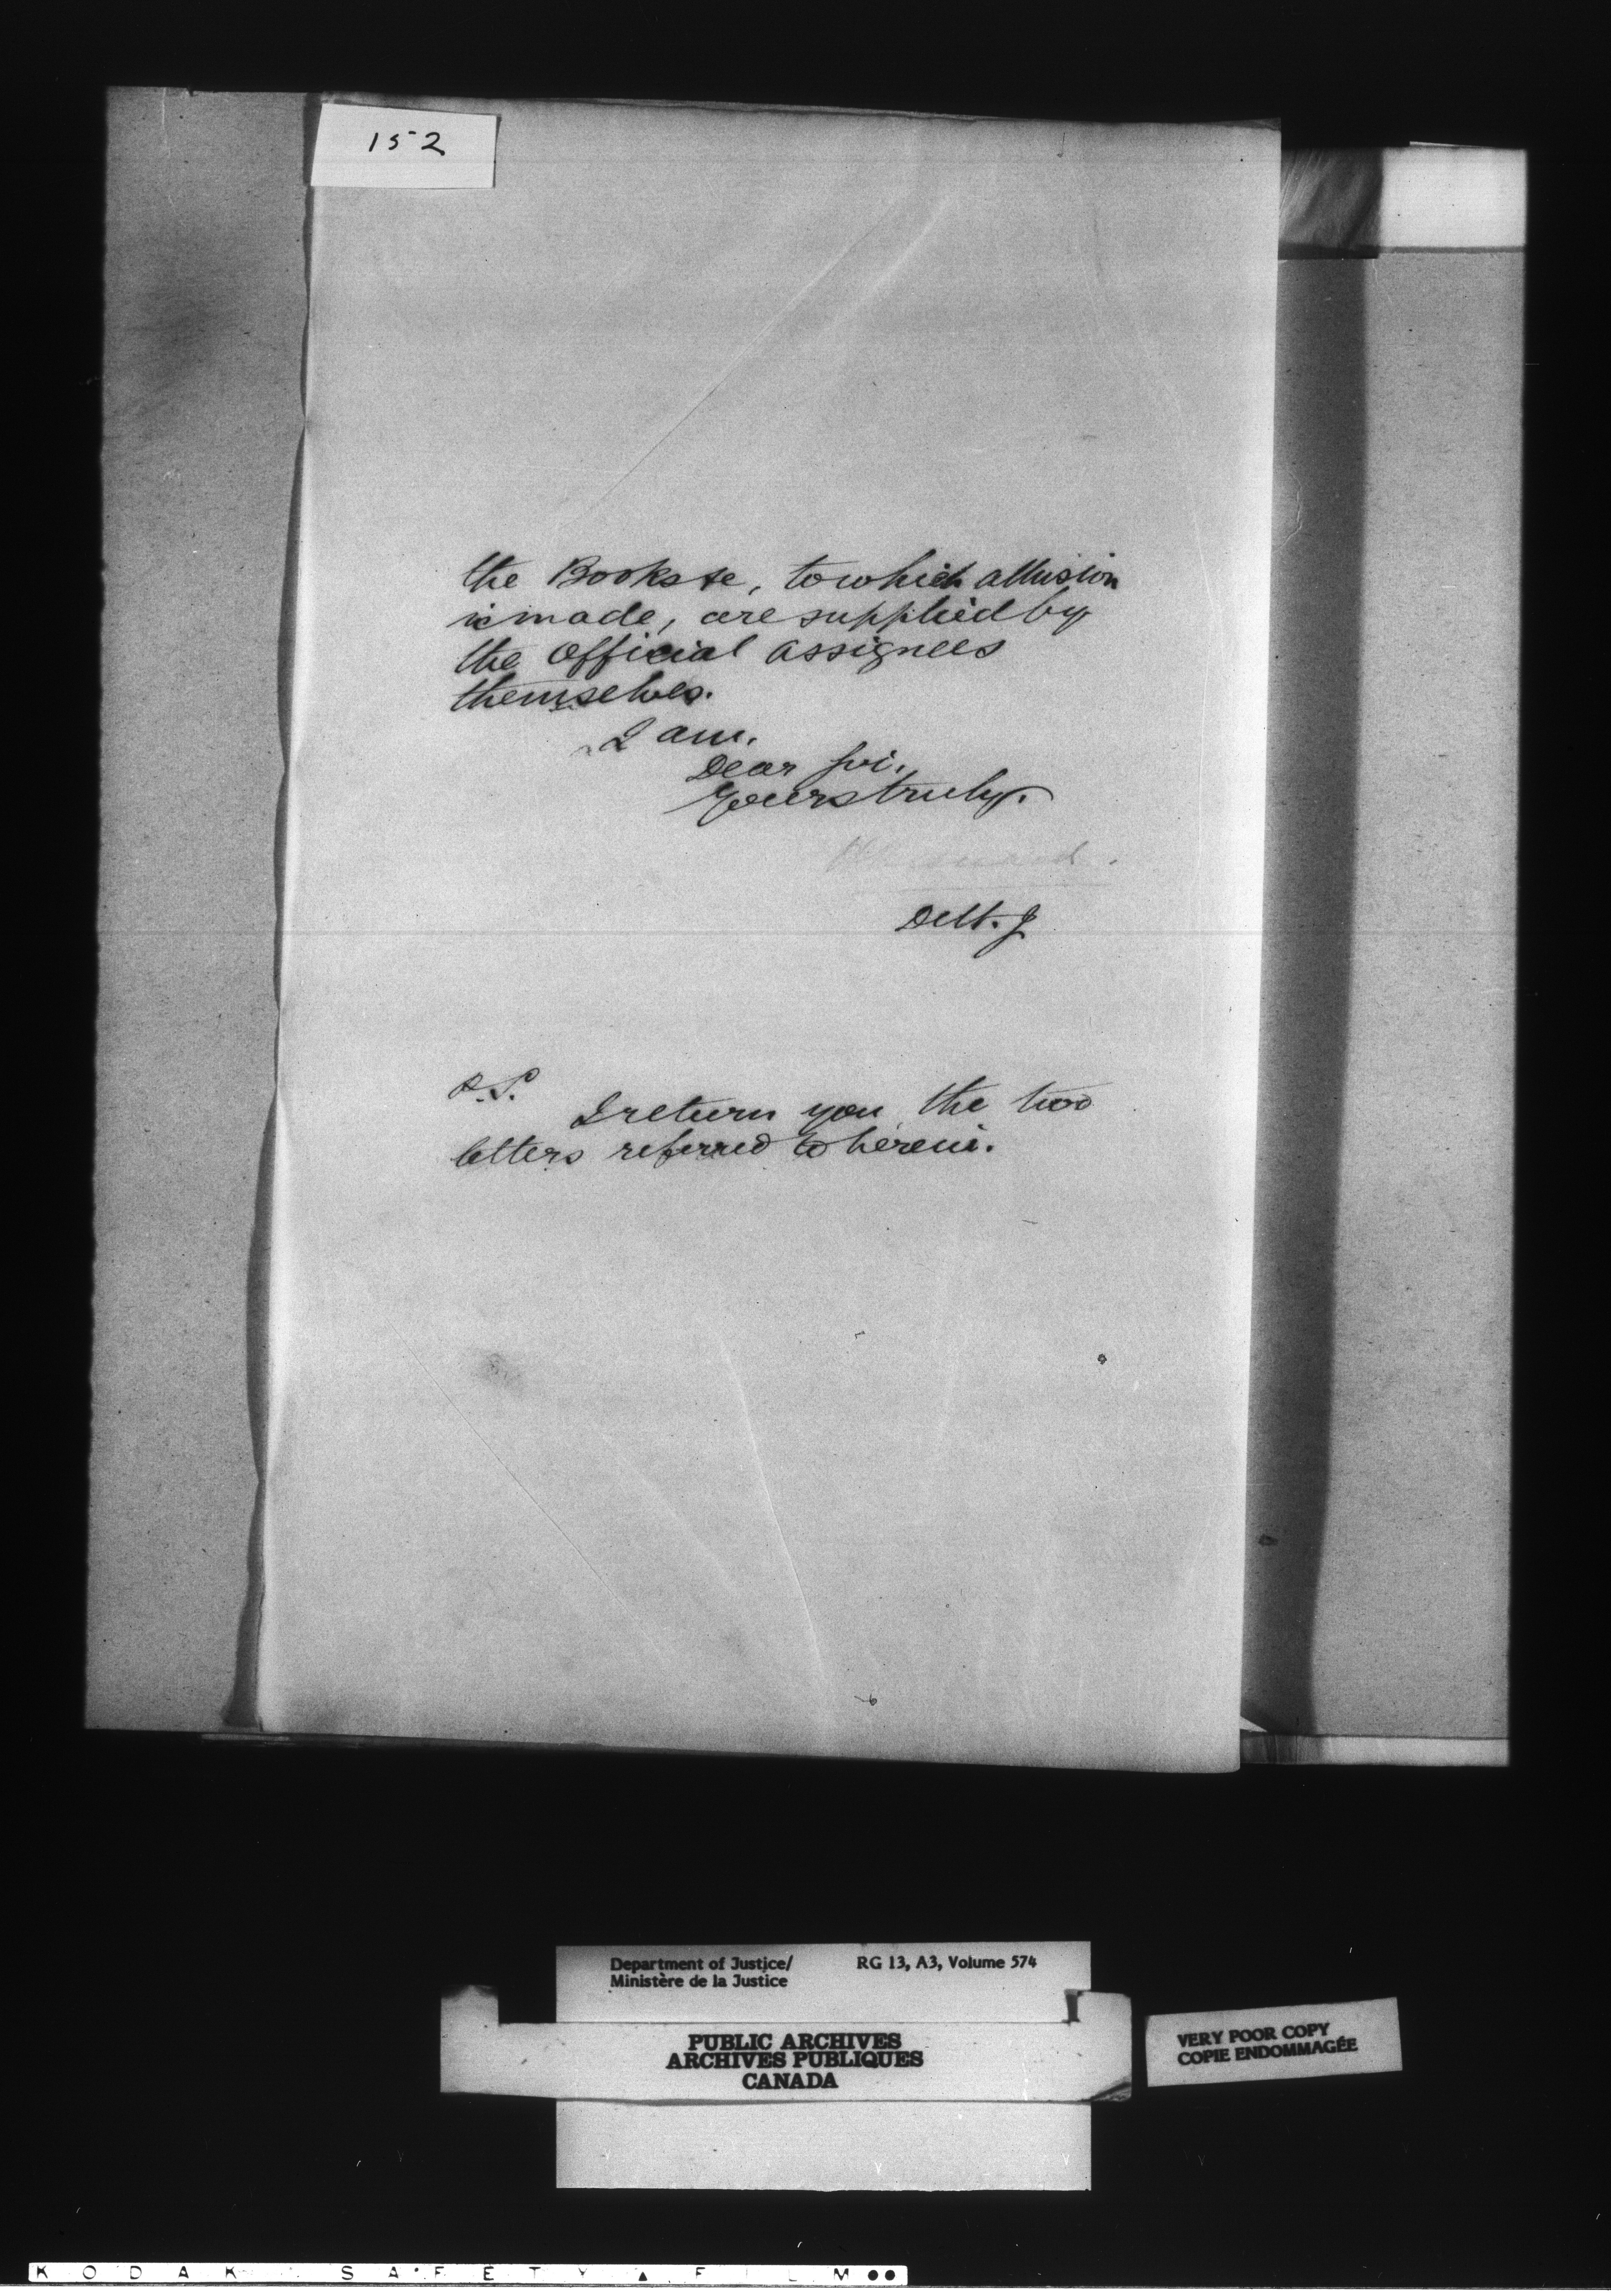 152
the Books &c, to which allusion
is made, are supplied by
the Official Assignees
themselves.
I am,
Dear Sir,
Yours truly,
P.S.
I return you the two
letters referred to herein.
Department of Justice/ RG 13, A3, Volume 574
Ministère de la Justice
PUBLIC ARCHIVES
ARCHIVES PUBLIQUES
CANADA
VERY POOR COPY
COPIE ENDOMMAGÉE
KODAK SAFETY FILM